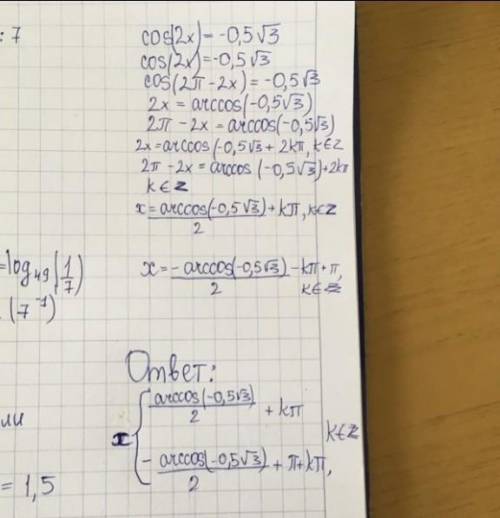 : 7
cos(2x) = -0,5√3
cos(2x) = -0,5√3
cos(2π - 2x) = -0,5√3
2x = arccos(-0,5√3)
2π - 2x = arccos(-0,5√3)
2x = arccos(-0,5√3 + 2kπ, k∈Z
2π - 2x = arccos (-0,5√3) + 2kπ
k∈Z
x = arccos(-0,5√3)/2 + kπ, k∈Z
= log₄₉(1/7)
(7⁻¹)
x = -arccos(-0,5√3)/2 - kπ + π,
k∈Z
Ответ:
x { arccos(-0,5√3)/2 + kπ
ли
k∈Z
- arccos(-0,5√3)/2 + π + kπ,
= 1,5